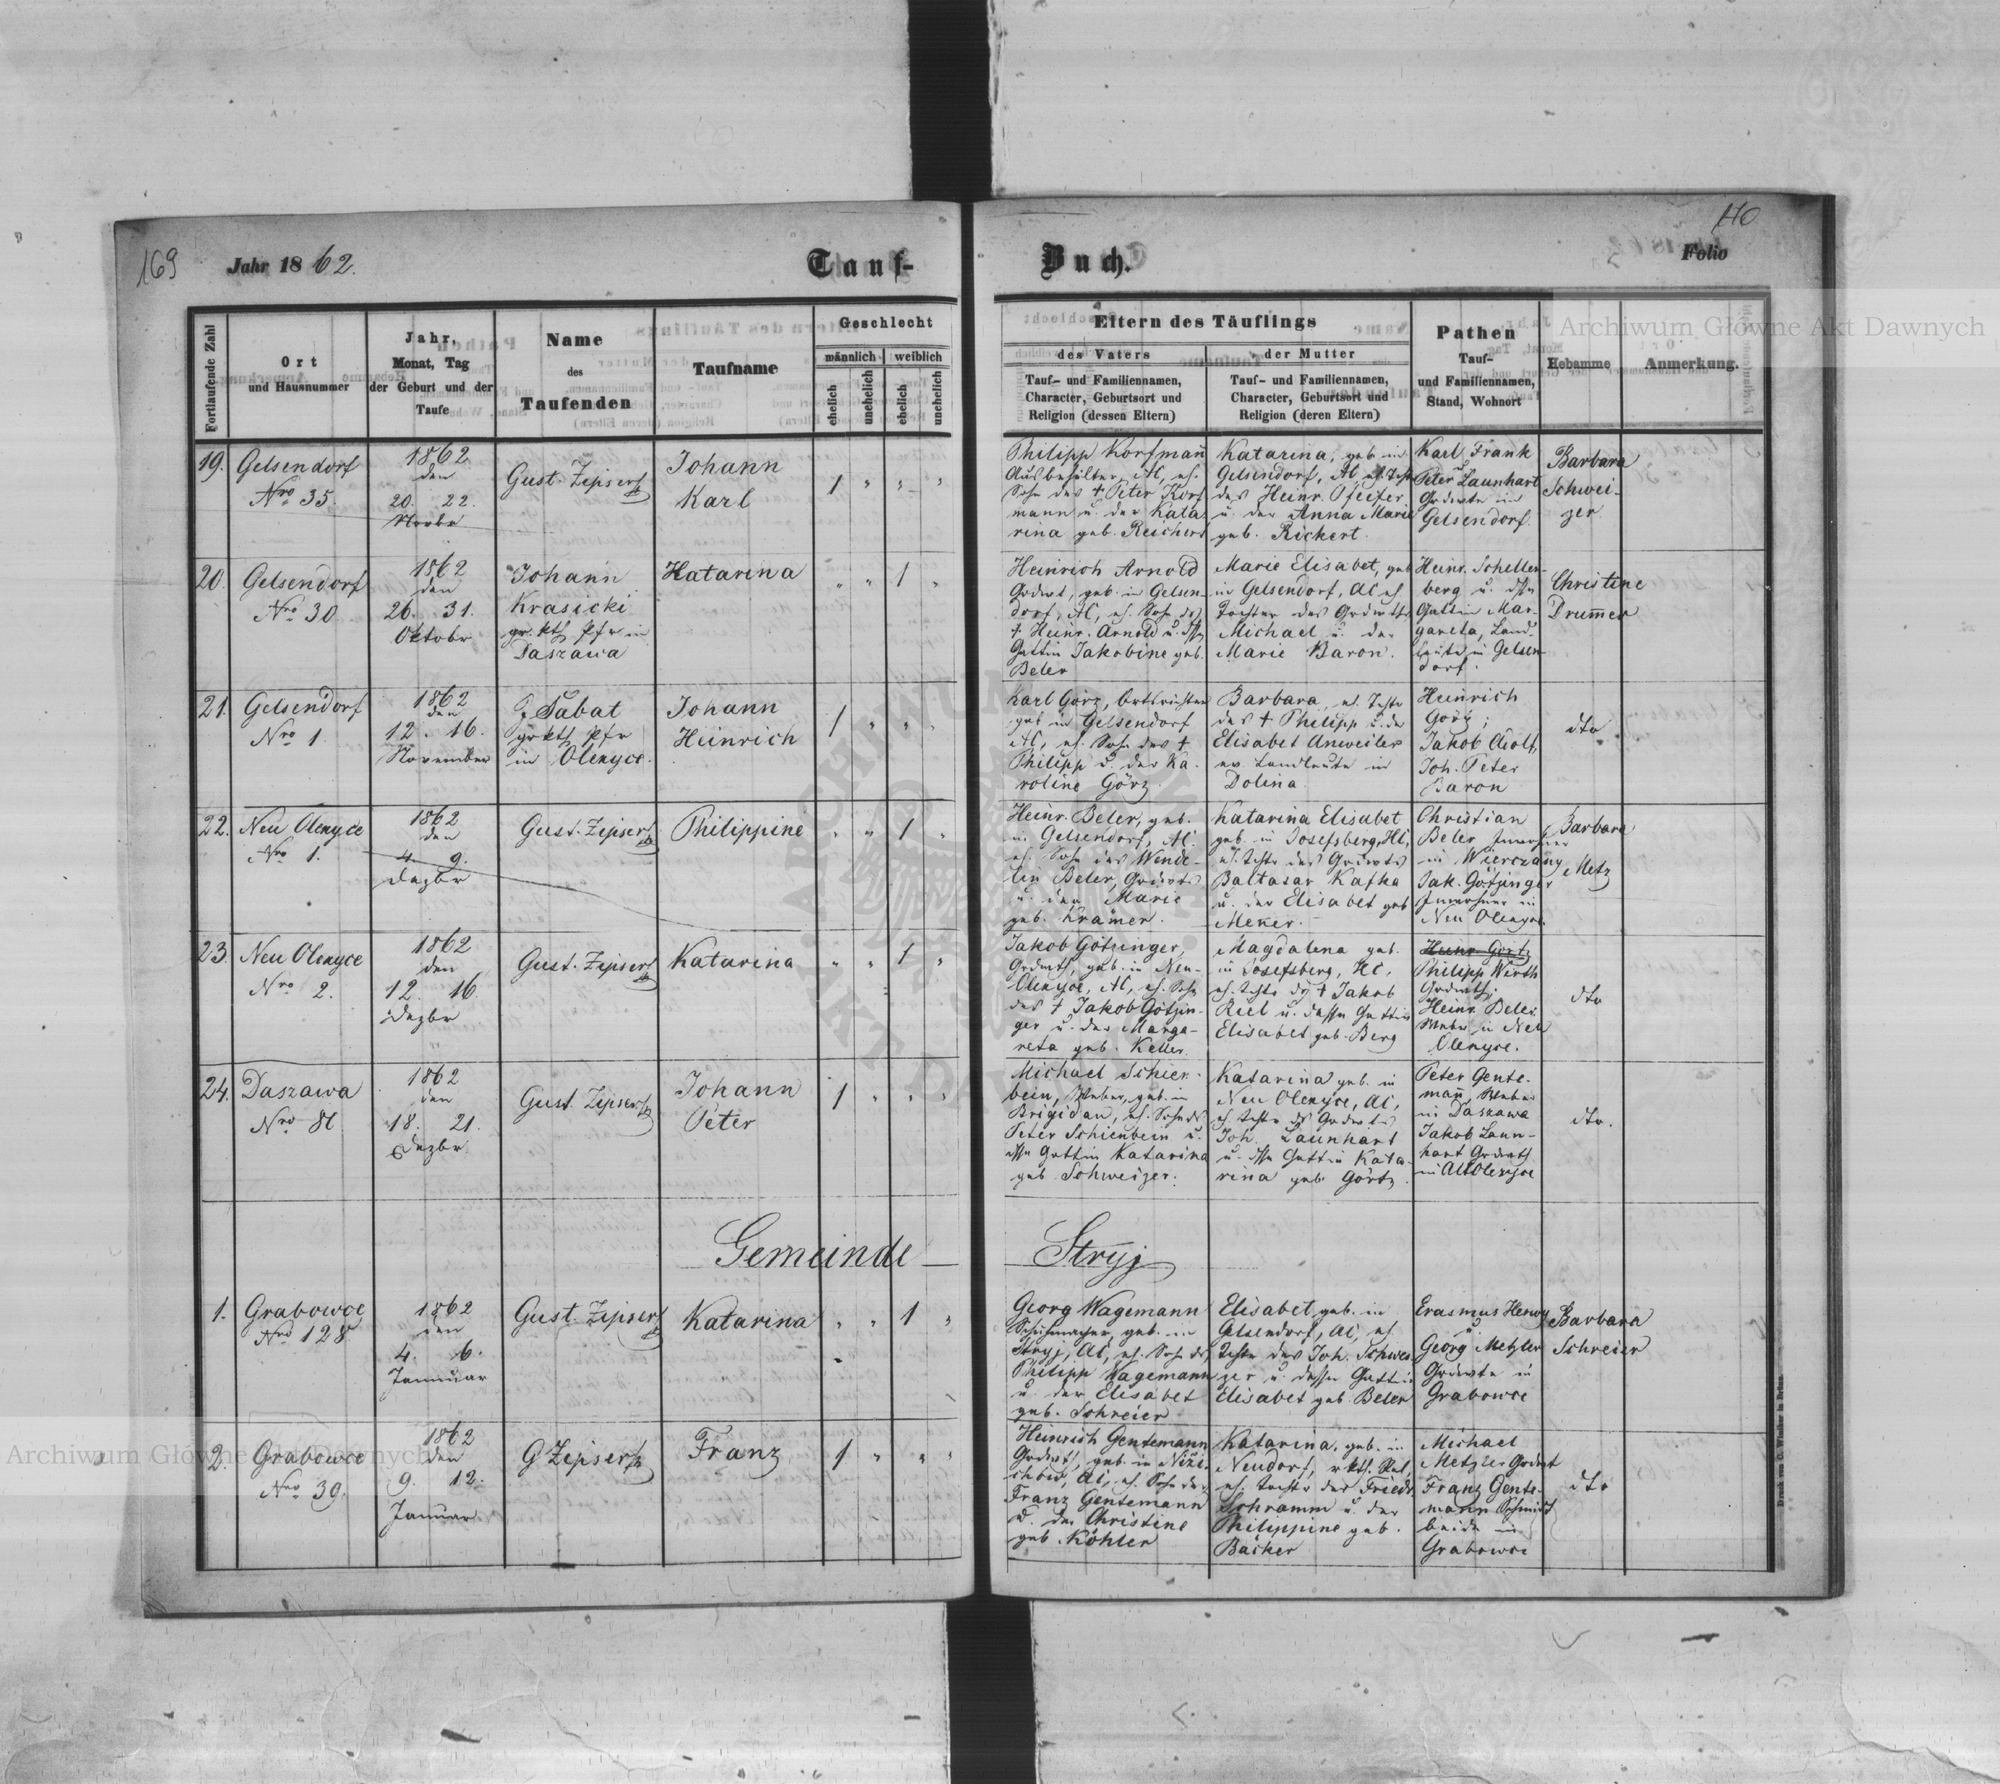 169
Jahr 1862.
Tauf-
Buch.
110
Folio
Fortlaufende Zahl
Ort
und Hausnummer
Jahr,
Monat, Tag
der Geburt und der
Taufe
Name
des
Taufenden
Taufname
Geschlecht
männlich
weiblich
ehelich
unehelich
ehelich
unehelich
Eltern des Täuflings
des Vaters
Tauf- und Familiennamen,
Character, Geburtsort und
Religion (dessen Eltern)
der Mutter
Tauf- und Familiennamen,
Character, Geburtsort und
Religion (deren Eltern)
Pathen
Tauf-
und Familiennamen,
Stand, Wohnort
Hebamme
Anmerkung.
Archiwum Główne Akt Dawnych
19.
Gelsendorf
Nro 35.
1862
den
20. 22.
Novbr
Gust. Zipser
Johann
Karl
1 " " "
Philipp Korfmañ
Ausbehälter, AC, eh.
Sohn des † Peter Korf
mann u. der Kata
rina geb. Reichert
Katarina, geb. in
Gelsendorf, AC, eh. Tocht
des Heinr. Pfeifer
u. der Anna Marie
geb. Rickert.
Karl Frank
u.
Peter Launhart
Grdwrte in
Gelsendorf.
Barbara
Schwei-
zer
20.
Gelsendorf
Nro 30
1862
den
26. 31.
Oktobr
Johann
Krasicki
gr. kth Pfr in
Daszawa
Katarina
" " 1 "
Heinrich Arnold
Grdwrt, geb. in Gelsen-
dorf, AC, eh. Sohn des
† Heinr. Arnold u. dssn
Gattin Jakobine geb.
Beler
Marie Elisabet, geb
in Gelsendorf, AC eh
Tochter des Grdwrths
Michael u. der
Marie Baron.
Heinr. Schellen-
berg u. dssn
Gattin Mar-
gareta, Land-
leute in Gelsen-
dorf.
Christine
Drum̄er
21.
Gelsendorf
Nro 1.
1862
den
12. 16.
November
Sabat
gr kth Pfr
in Olenyce.
Johann
Heinrich
1 " " "
Karl Görz, Ortsrichter
geb in Gelsendorf
AC, eh. Sohn des †
Philipp u. der Ka-
roline Görz
Barbara, eh. Tchtr
des † Philipp u. der
Elisabet Anweiler
ev Landleute in
Dolina.
Heinrich
Görz;
Jakob Adolf,
Joh. Peter
Baron
dto
22.
Neu Olenyce
Nro 1.
1862
den
4. 9.
Dezbr
Gust. Zipser
Philippine
" " 1 "
Heinr. Beler, geb.
in Gelsendorf, AC.
eh. Sohn des Wende-
lin Beler, Grdwrts
u. der Marie
geb. Krämer.
Katarina Elisabet
geb. in Josefsberg, HC,
eh. Tchtr des Grdwrts
Baltasar Kafka
u. der Elisabet geb
Meker.
Christian
Beler Inwohner
in Wierczany
Jak. Götzinger
Inwohner in
Neu Olenyce
Barbara
Metz
23.
Neu Olenyce
Nro 2.
1862
den
12. 16.
Dezbr
Gust. Zipser
Katarina
" " 1 "
Jakob Götzinger,
Grdwrth, geb. in Neu-
Olenyce, AC, eh. Sohn
des † Jakob Götzin-
ger u. der Marga-
reta geb. Keller.
Magdalena geb.
in Josefsberg, HC,
eh. Tchtr ds † Jakob
Riel u. dessen Gattin
Elisabet geb. Berg
Heinr. Görtz
Philipp Wirth
Grdwrth;
Heinr. Beler
Weber in Neu
Olenyce.
dto
24.
Daszawa
Nro 81
1862
den
18. 21.
Dezbr
Gust. Zipser
Johann
Peter
1 " " "
Michael Schien-
bein, Weber, geb. in
Brigidau, eh. Sohn ds
Peter Schienbein u.
dssn Gattin Katarina
geb. Schweizer.
Katarina geb. in
Neu Olenyce, AC,
eh. Tchtr ds Grdwrts
Joh. Launhart
u. dssn Gattin Kata-
rina geb. Görtz.
Peter Gente-
mañ, Weber
in Daszawa
Jakob Laun-
hart Grdwrth
in AltOlenyce
dto.
Gemeinde — Stryj
1.
Grabowce
Nro 128
1862
den
4. 6.
Jannuar
Gust. Zipser
Katarina
" " 1 "
Georg Wagemann
Schuhmacher, geb. in
Stryj, AC, eh. Sohn des
Philipp Wagemann
u. der Elisabet
geb. Schreier
Elisabet, geb. in
Gelsendorf, AC, eh.
Tchtr des Joh. Schwei
zer u. dessen Gattin
Elisabet geb. Beler
Erasmus Henoy
u.
Georg Metzler
Grdwrte in
Grabowce
Barbara
Schreier
2.
Grabowce
Nro 39.
1862
den
9. 12.
Januar
G Zipser
Franz
1 " " "
Heinrich Gentemann
Grdwrt, geb. in
AC, eh. Sohn des
Franz Gentemann
u. der Christine
geb. Köhler
Katarina, geb. in
Neudorf, r kth. Rel,
eh. Tochtr des Friedr
Schramm u. der
Philippine geb.
Bäcker
Michael
Metzler Grdwrt
Franz Gente-
mann Schmidt
beide in
Grabowce
dto
Archiwum Główne Akt Dawnych